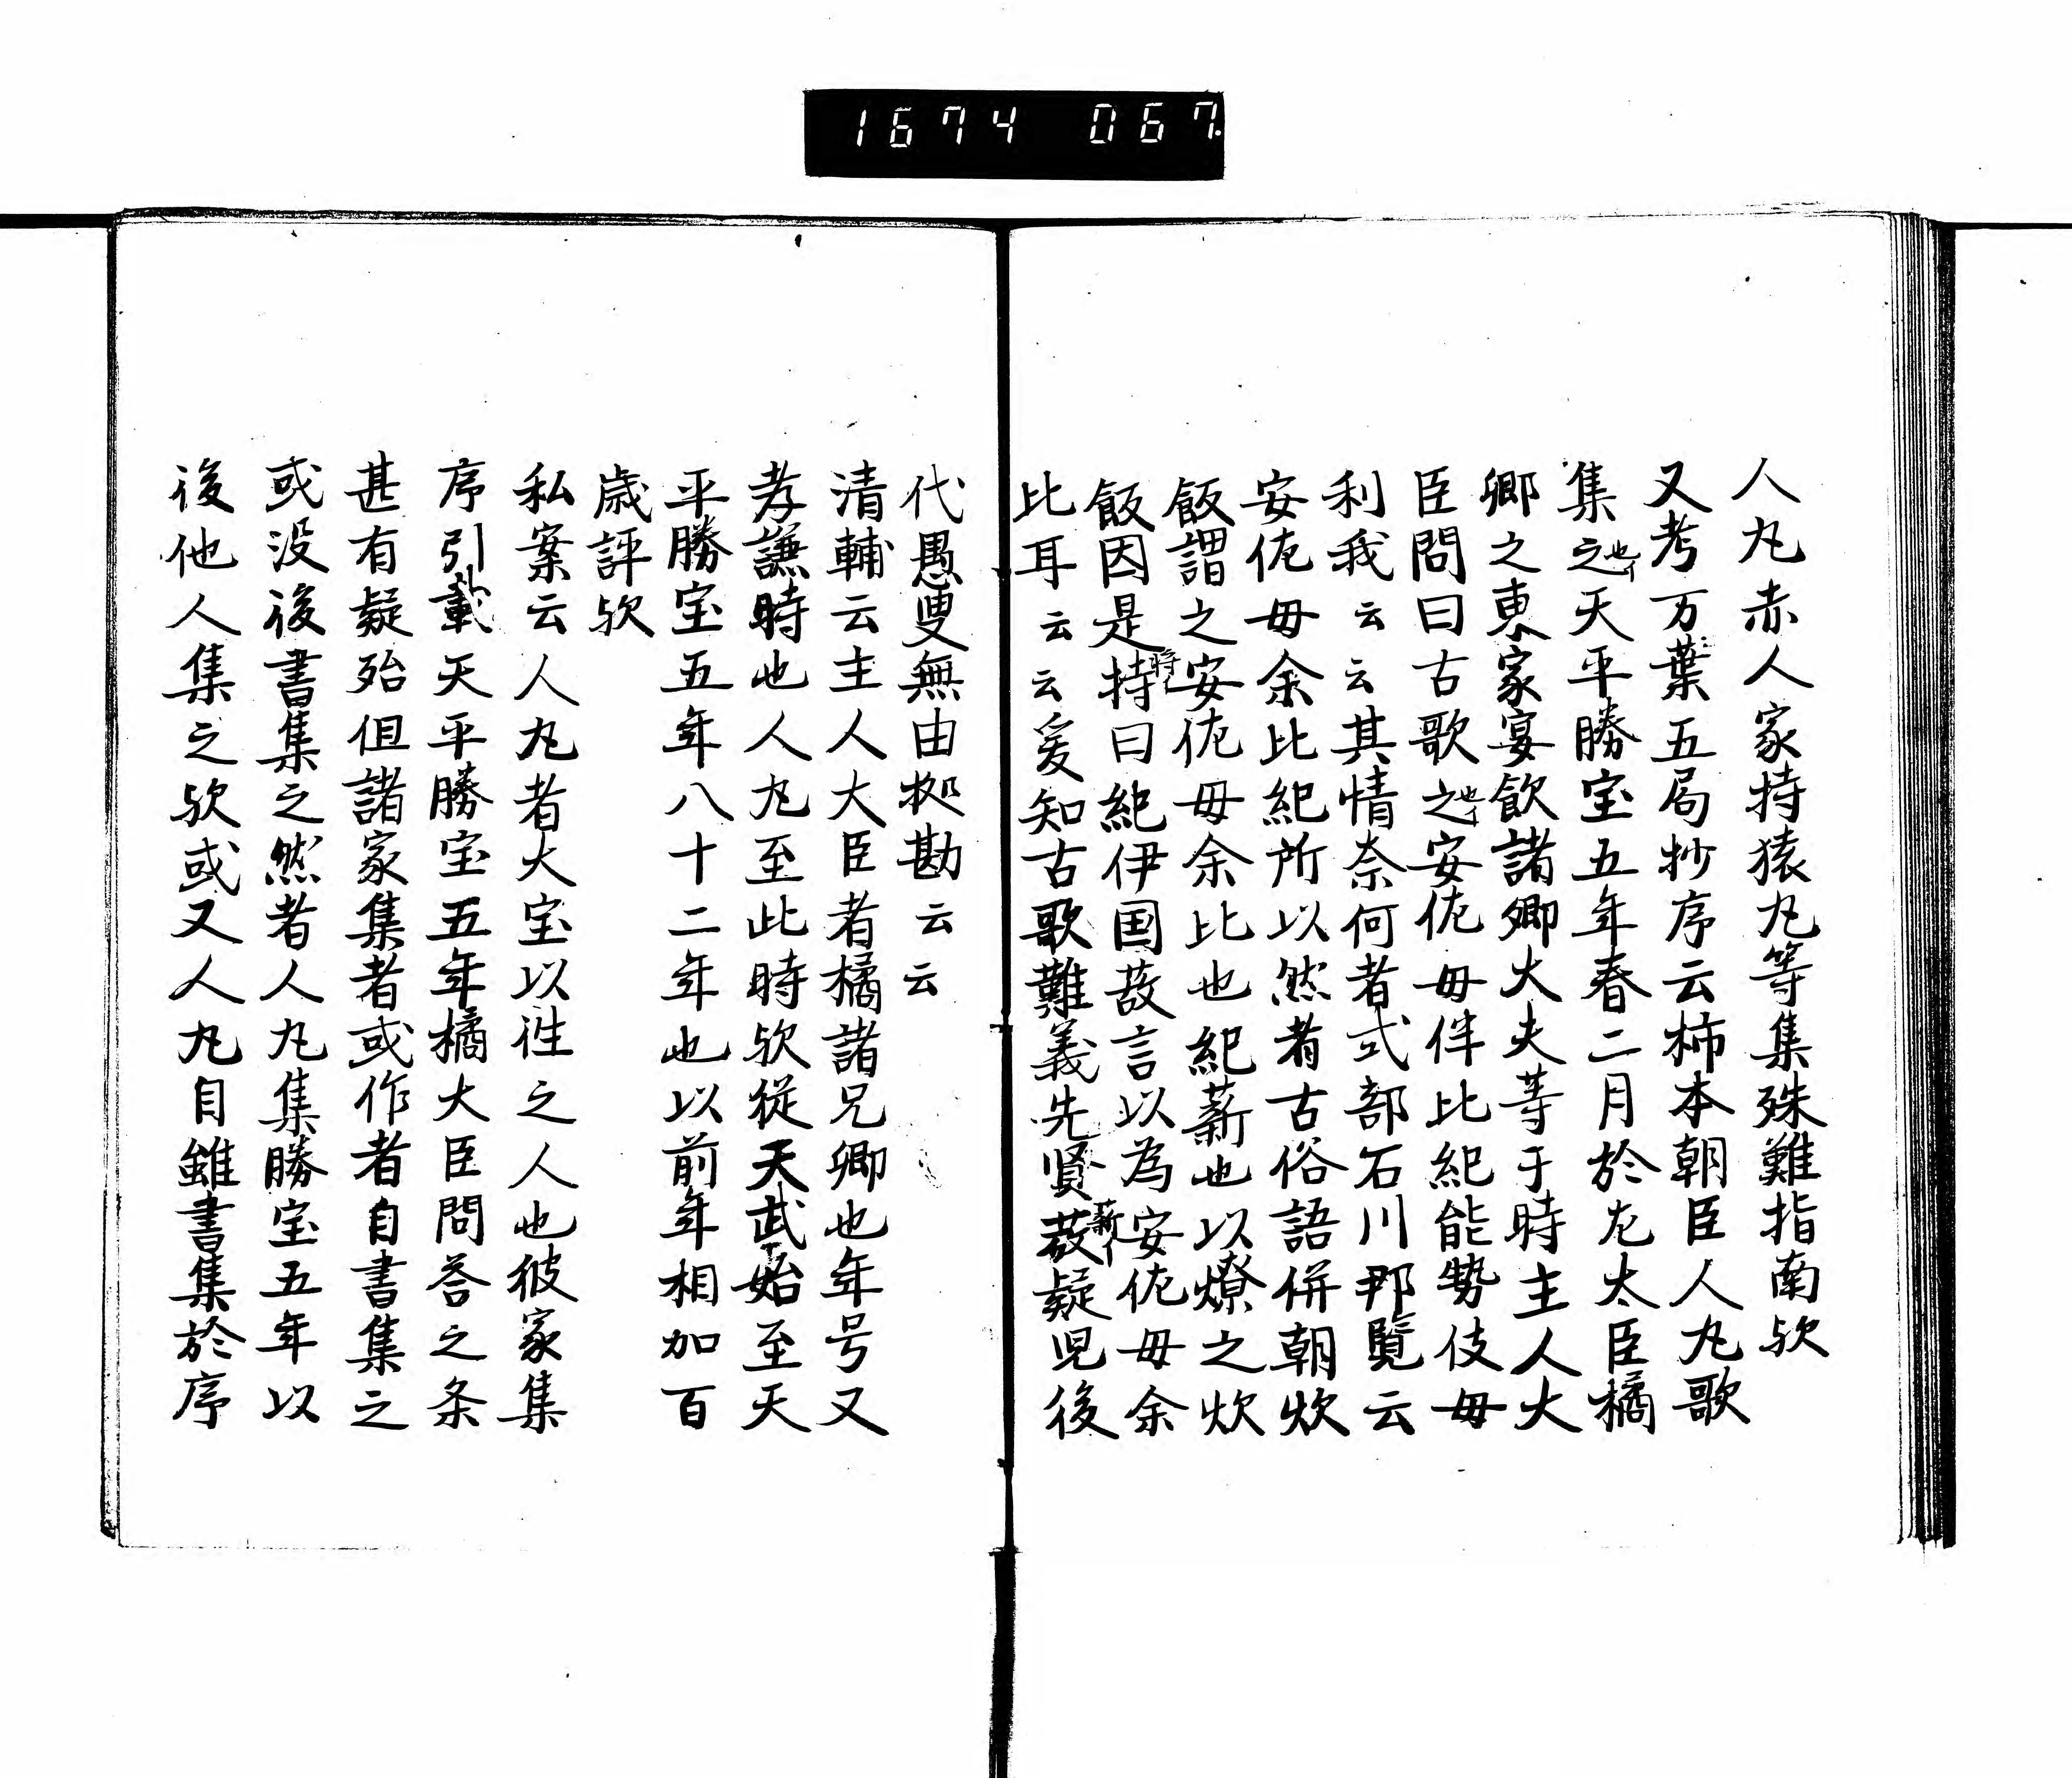 1674 067.
人丸赤人家持猿丸等集殊難指南欤
又考万葉五局抄序云柿本朝臣人丸歌
集之也イ天平勝宝五年春二月於左太臣橘
卿之東家宴飲諸卿大夫等于時主人大
臣問曰古歌之也イ安佐毋伴比紀能勢伎毋
利我云云其情奈何者式部石川郡覧云
安佐毋余比紀所以然者古俗語併朝炊
飯謂之安佐毋余比也紀薪也以燎之炊
飯因是持将イ曰紀伊国故言以為安佐毋余
比耳云云爰知古歌難義先賢故薪イ疑況後
代愚叟無由拠勘云云
清輔云主人大臣者橘諸兄卿也年号又
孝謙時也人丸至此時欤従天武始至天
平勝宝五年八十二年也以前年相加百
歳評欤
私案云人丸者大宝以往之人也彼家集
序引載天平勝宝五年橘大臣問答之条
甚有疑殆但諸家集者或作者自書集之
或没後書集之然者人丸集勝宝五年以
後他人集之欤或又人丸自雖書集於序